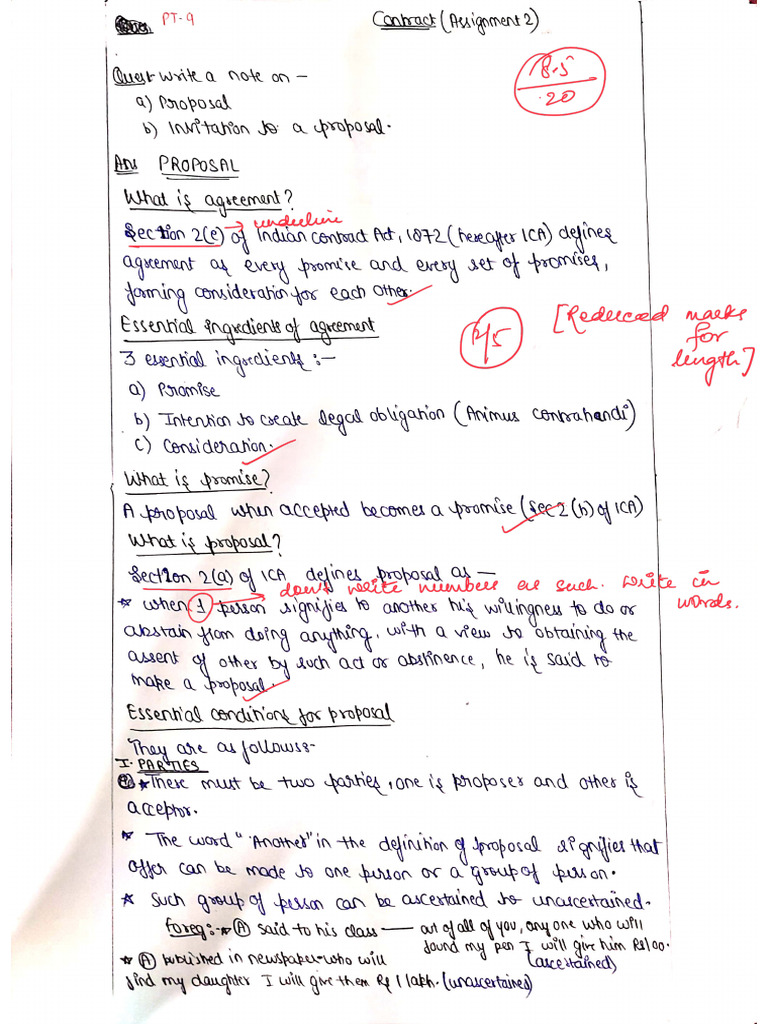 PT-9
Contract (Assignment 2)
8.5/20
Quest write a note on –
a) Proposal
b) Invitation to a proposal.
Ans PROPOSAL
What is agreement?
→ underline
Section 2(e) of Indian Contract Act, 1872 (hereafter ICA) defines
agreement as every promise and every set of promises,
forming consideration for each other.
Essential ingredients of agreement
[Reduced marks
for
length]
3 essential ingredients :–
a) Promise
b) Intention to create legal obligation (Animus contrahendi)
c) Consideration.
What is promise?
A proposal when accepted becomes a promise (Sec 2(b) of ICA)
What is proposal?
Section 2(a) of ICA defines proposal as –
→ don't write numbers as such. write in
words.
* when 1 person signifies to another his willingness to do or
abstain from doing anything, with a view to obtaining the
assent of other by such act or abstinence, he is said to
make a proposal.
Essential conditions for proposal
They are as follows:-
I. PARTIES
* There must be two parties, one is proposer and other is
acceptor.
* The word "Another" in the definition of proposal signifies that
offer can be made to one person or a group of person.
* Such group of person can be ascertained to unascertained.
For eg:- * A said to his class — out of all of you, any one who will
found my pen I will give him Rs100.
(ascertained)
* A published in newspaper who will
find my daughter I will give them Rs 1 lakh. (unascertained)